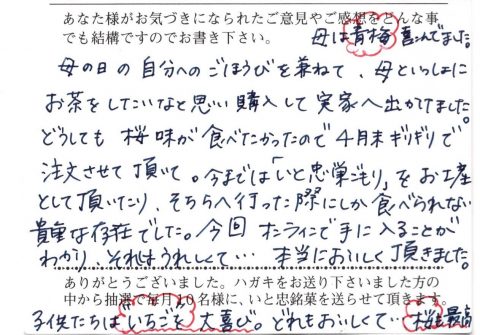 あなた様がお気づきになられたご意見やご感想をどんな事
でも結構ですのでお書き下さい。
母は青梅喜んでました。
母の日の自分へのごほうびを兼ねて、母といっしょに
お茶をしたいなと思い購入して実家へ出かけました。
どうしても桜味が食べたかったので4月末ギリギリで
注文させて頂いて。今までは「いと忠巣ごもり」をお土産
として頂いたり、そちらへ行った際にしか食べられない
貴重な存在でした。今回オンラインで手に入ることが
わかり、それはうれしくて… 本当においしく頂きました。
ありがとうございました。ハガキをお送り下さいました方の
中から抽選で毎月10名様に、いと忠銘菓を送らせて頂きます。
子供たちはいちごを大喜び。どれもおいしくて…桜も最高